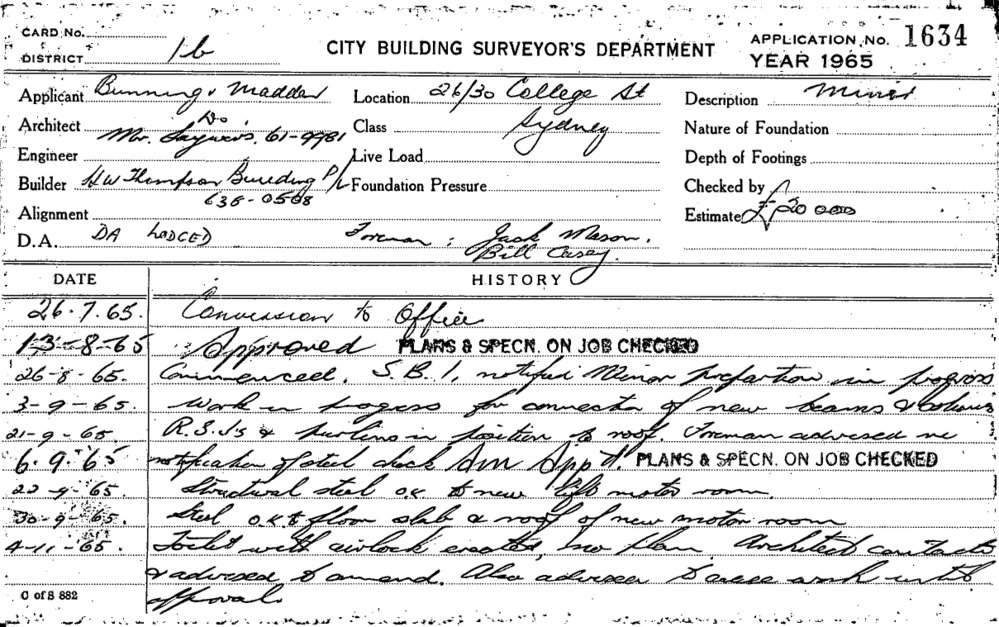 CARD No.
DISTRICT 1b
CITY BUILDING SURVEYOR'S DEPARTMENT
APPLICATION No. 1634
YEAR 1965
Applicant Bunning & Madden
Location 26/30 College St
Description Minor
Architect Do
Mr. 61-9981
Class Sydney
Nature of Foundation
Engineer
Live Load
Depth of Footings
Builder H W Thompson Building P/L
Foundation Pressure
Checked by
635-0508
Alignment
Estimate £20 000
D.A. DA LODGED
Foreman : Jack Mason.
Bill Casey.
DATE
HISTORY
26.7.65. Conversion to Office
13-8-65 Approved PLANS & SPECN. ON JOB CHECKED
26-8-65. Commenced. S.B.1, notified Minor in progress
3-9-65. Work in progress for connection of new beams & columns
21-9-65. R.S.Js & purlins in position to roof. Foreman advised re
6.9.65 notification of steel check Am App'd. PLANS & SPECN. ON JOB CHECKED
22-9-65. Structural steel o.k to new lift motor room.
30-9-65. Steel o.k to floor slab & roof of new motor room
4-11-65. Toilet with airlock erected, no plan. Architect contacted
& advised to amend. Also advised to cease work until
approval.
C of S 882